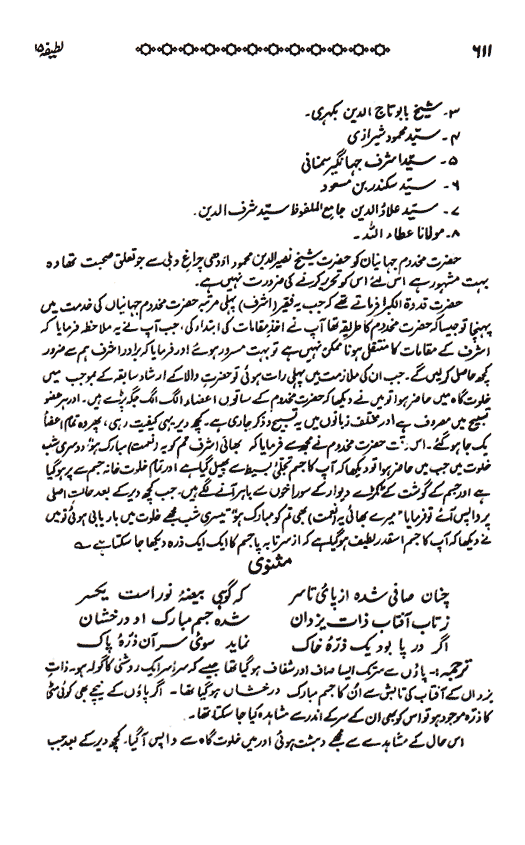 ۶۱۱ لطیفہ ۱۵
۳۔ شیخ بابو تاج الدین بکہری۔
۴۔ سید محمود شیرازی
۵۔ سید اشرف جہانگیر سمنانی
۶۔ سید سکندر بن مسعود
۷۔ سید علاؤ الدین جامع الملفوظ سید شرف الدین۔
۸۔ مولانا عطاء اللہ۔
حضرت مخدوم جہانیاں کو حضرت شیخ نصیر الدین محمود اودھی چراغ دہلی سے جو تعلق صحبت تھا وہ
بہت مشہور ہے اس لئے اس کو تحریر کرنے کی ضرورت نہیں ہے۔
حضرت قدوۃ الکبرا فرماتے تھے کہ جب یہ فقیر (اشرف) پہلی مرتبہ حضرت مخدوم جہانیاں کی خدمت میں
پہنچا تو جیسا کہ حضرت مخدوم کا طریقہ تھا آپ نے اخذ مقامات کی ابتدا کی، جب آپ نے یہ ملاحظہ فرمایا کہ
اشرف کے مقامات کا منتقل ہونا ممکن نہیں ہے تو بہت مسرور ہوئے اور فرمایا کہ برادر اشرف ہم سے ضرور
کچھ حاصل کریں گے۔ جب ان کی ملازمت میں پہلی رات ہوئی تو حضرت والا کے ارشاد سابقہ کے بموجب میں
خلوت گاہ میں حاضر ہوا تو میں نے دیکھا کہ حضرت مخدوم کے ساتوں اعضاء الگ الگ جگہ پڑے ہیں۔ اور ہر عضو
تسبیح میں مصروف ہے اور مختلف زبانوں میں یہ تسبیح و ذکر جاری ہے۔ کچھ دیر یہی کیفیت رہی، پھر وہ تمام اعضا
یک جا ہو گئے۔ اس وقت حضرت مخدوم نے مجھ سے فرمایا کہ بھائی اشرف تم کو یہ (نعمت) مبارک ہو! دوسری شب
خلوت میں جب میں حاضر ہوا تو دیکھا کہ آپ کا جسم تجلئ بسیط سے پھیل گیا ہے اور تمام خلوت خانہ جسم سے پر ہو گیا
ہے اور جسم کے گوشت کے ٹکڑے دیوار کے سوراخوں سے باہر آنے لگے ہیں۔ جب کچھ دیر کے بعد حالت اصلی
پر واپس آئے تو فرمایا "میرے بھائی یہ (نعمت) بھی تم کو مبارک ہو" تیسری شب مجھے خلوت میں باریابی ہوئی تو میں
نے دیکھا کہ آپ کا جسم اسقدر لطیف ہو گیا ہے کہ از سر تا بہ پا جسم کا ایک ایک ذرہ دیکھا جا سکتا ہے
مثنوی
چناں صافی شدہ از پائ تا سر کہ گوہی بیضۂ نور است یکسر
ز تاب آفتاب ذات یزداں شدہ جسم مبارک او درخشان
اگر در پا بود یک ذرۂ خاک نماید سوئی سر آن ذرۂ پاک
ترجمہ:۔ پاؤں سے سر تک ایسا صاف اور شفاف ہو گیا تھا جیسے کہ سراسر ایک روشنی کا گولہ ہو۔ ذات
یزداں کے آفتاب کی تابش سے ان کا جسم مبارک درخشاں ہو گیا تھا۔ اگر پاؤں کے نیچے بھی کوئی مٹی
کا ذرہ موجود ہو تو اس کو بھی ان کے سر کے اندر سے مشاہدہ کیا جا سکتا تھا۔
اس حال کے مشاہدے سے مجھے دہشت ہوئی اور میں خلوت گاہ سے واپس آ گیا۔ کچھ دیر کے بعد جب